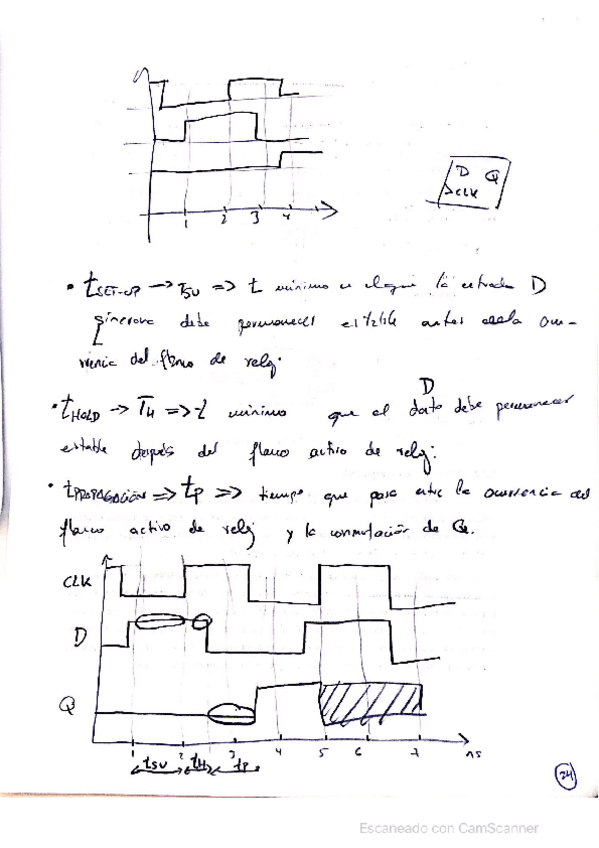 1 2 3 4
D Q
CLK
• tSET-UP → TSU => t mínimo en el que la entrada D
síncrona debe permanecer estable antes de la ocu-
rrencia del flanco de reloj.
D
• tHOLD → TH => t mínimo que el dato debe permanecer
estable después del flanco activo de reloj.
• tPROPAGACIÓN => tP => tiempo que pasa entre la ocurrencia del
flanco activo de reloj y la conmutación de Q.
CLK
D
Q
1 2 3 4 5 6 7 ns
tSU tH tP
24
Escaneado con CamScanner